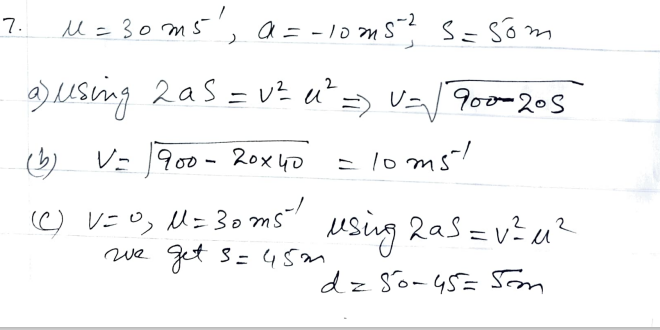 7. u = 30 ms⁻¹, a = -10 ms⁻², S = 50m
a) using 2aS = v² - u² ⇒ v = √(900-20S)
(b) v = √(900 - 20×40) = 10 ms⁻¹
(c) v = 0, u = 30 ms⁻¹ using 2aS = v² - u²
we get s = 45m
d = 50 - 45 = 5m